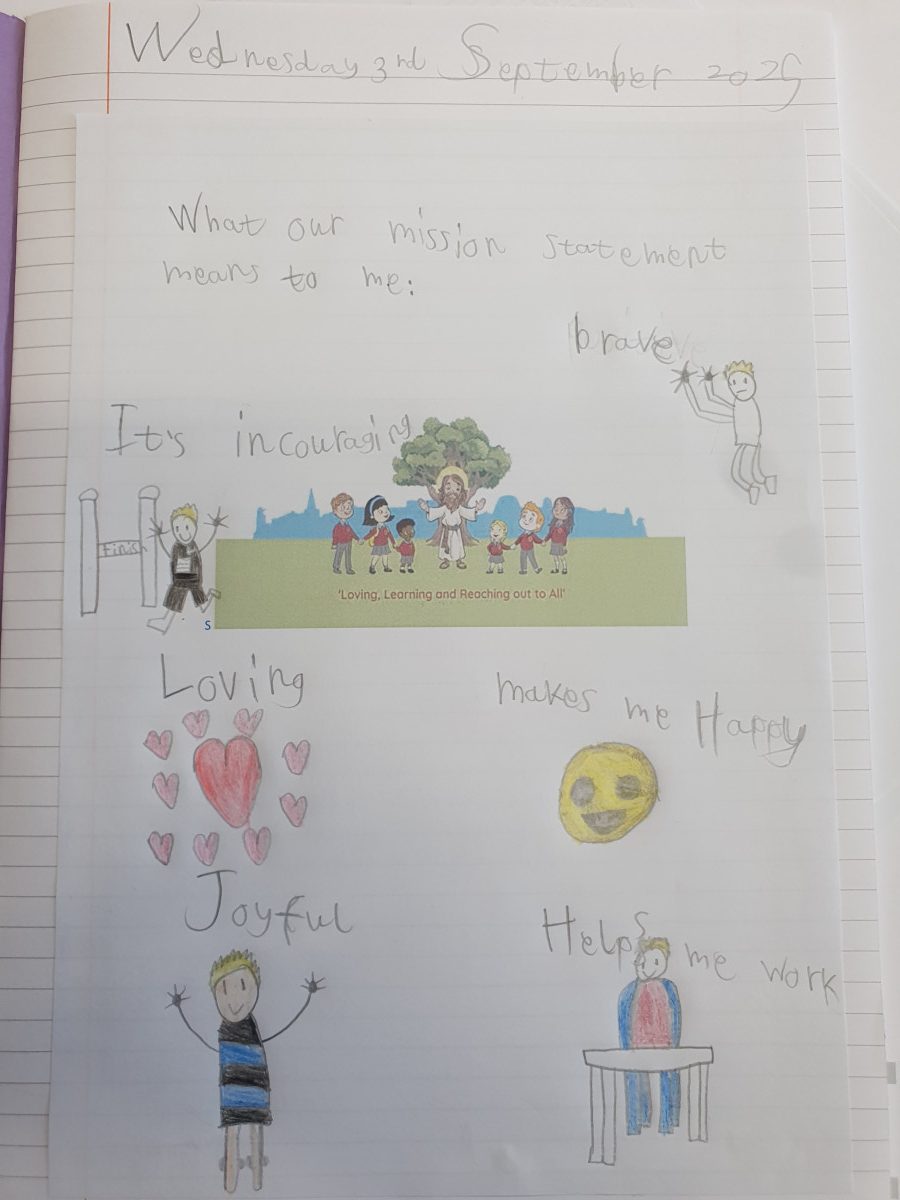 Wednesday 3rd September 2025
What our mission statement
means to me:
brave
It's incouraging
Finish
'Loving, Learning and Reaching out to All'
S
Loving
makes me Happy
Joyful
Helps me work